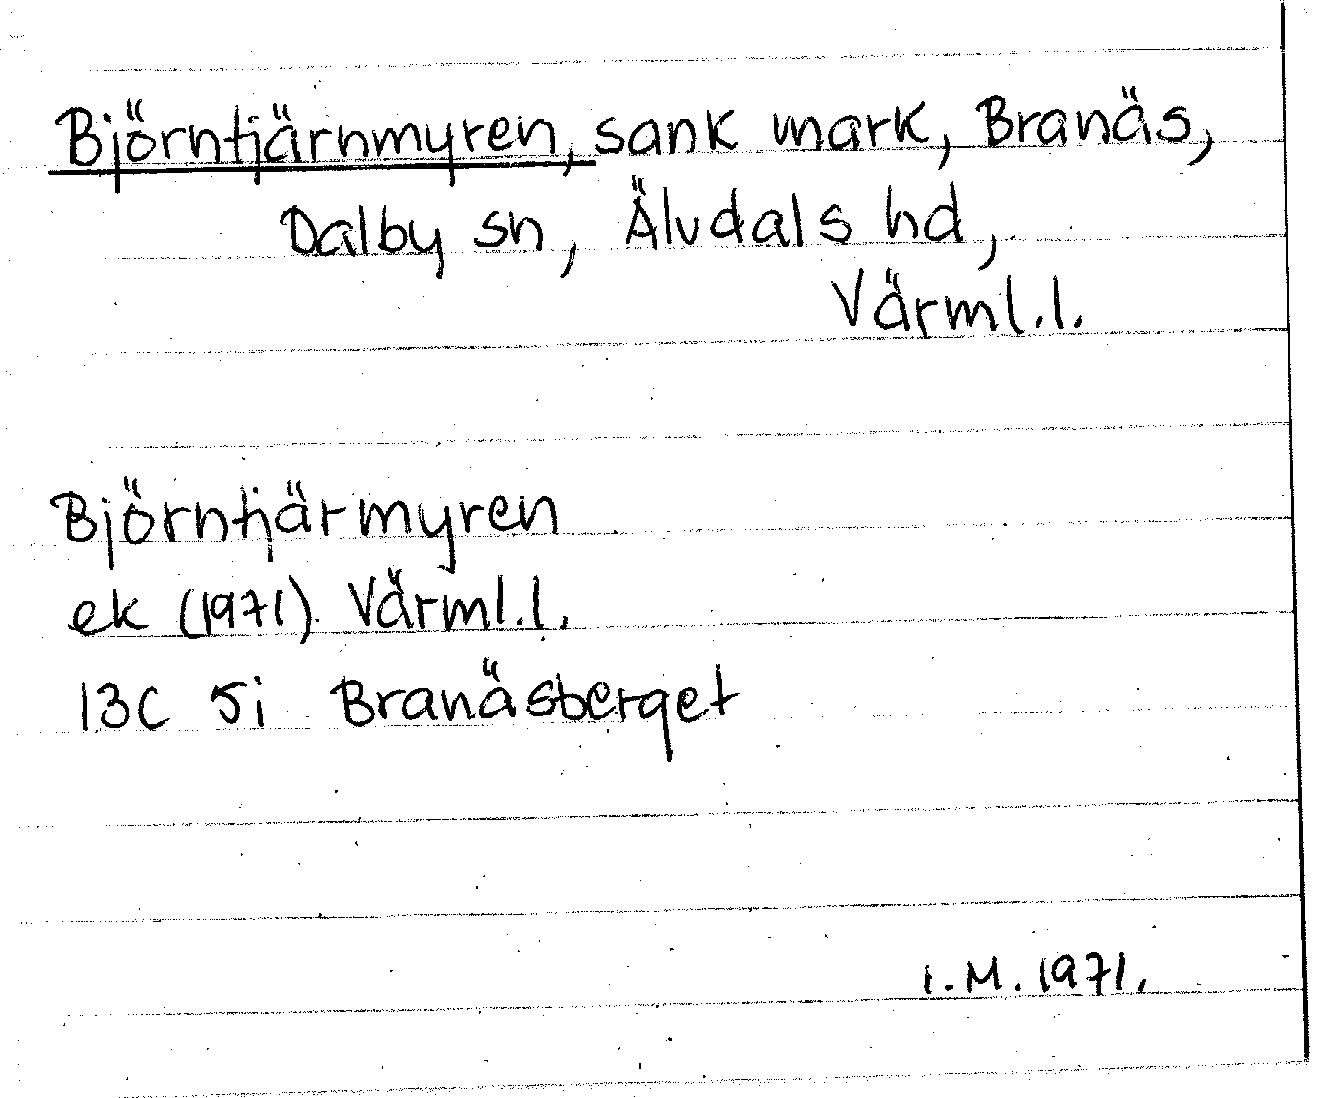 Björntjärnmyren, sank mark, Branäs,
Dalby sn, Älvdals hd,
Värml.l.
Björntjärmyren
ek (1971) Värml.l.
13C 5i Branäsberget
I.M. 1971.